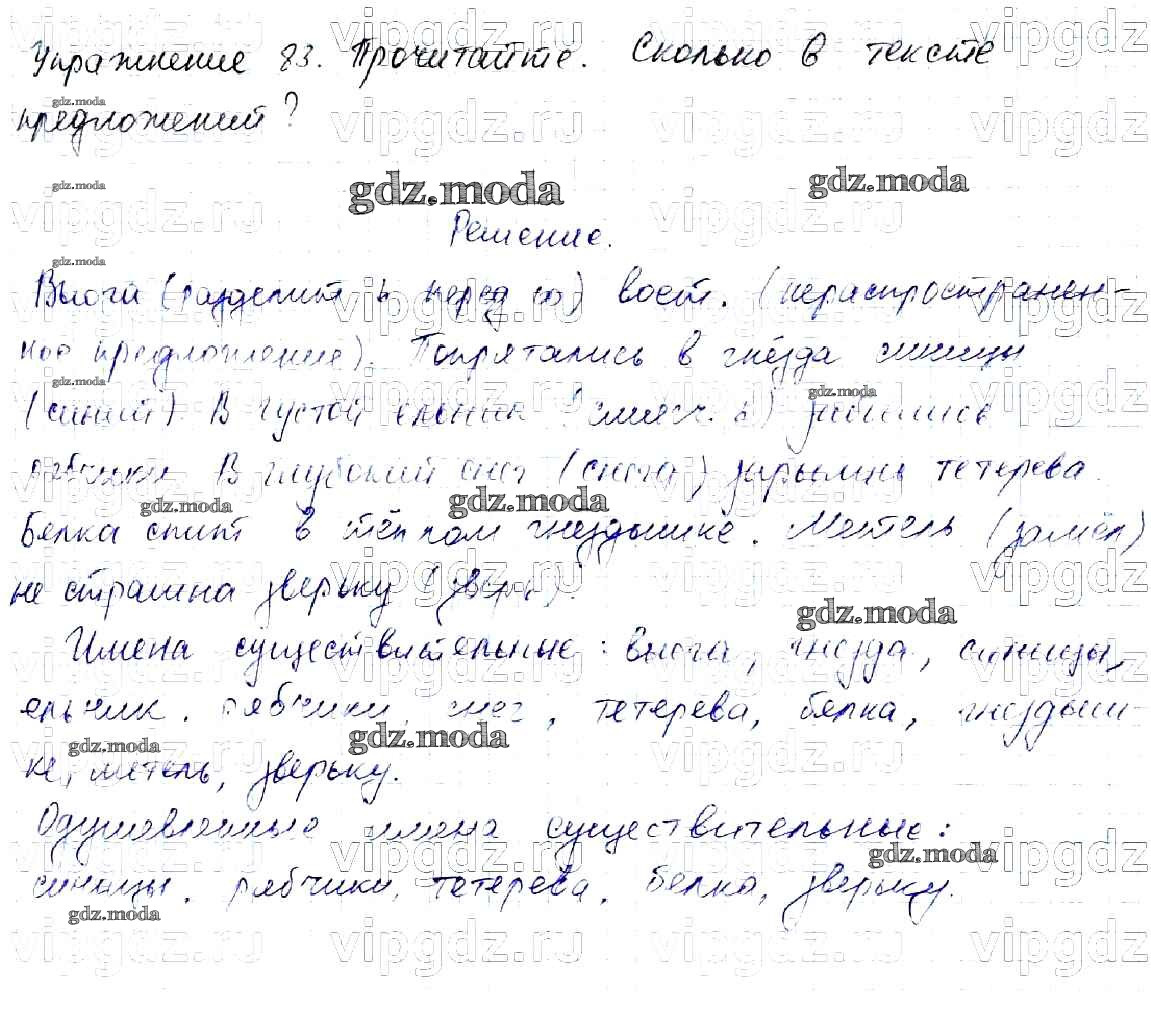 Упражнение 83. Прочитайте. Сколько в тексте
предложений?
gdz.moda
Решение.
Вьюга (разделит. ь перед ю) воет. (нераспространен-
ное предложение). Попрятались в гнёзда синицы
(синий) В густой ельник (смягч. ь) забились
рябчики В глубокий снег (снега) зарылись тетерева.
Белка спит в тёплом гнёздышке. Метель (замёл)
не страшна зверьку (зверь)
Имена существительные: вьюга, гнёзда, синицы,
ельник, рябчики, снег, тетерева, белка, гнёздыш-
ке, метель, зверьку.
Одушевленные имена существительные:
синицы, рябчики, тетерева, белка, зверьку.
vipgdz.ru